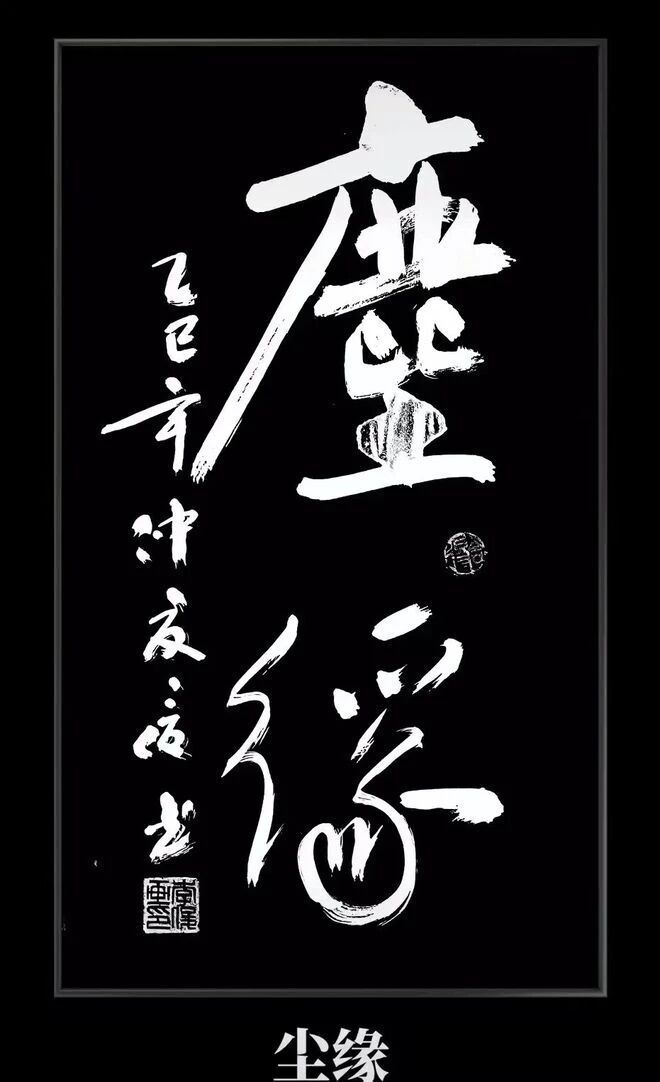 塵
缘
乙巳年仲夏
书
尘缘